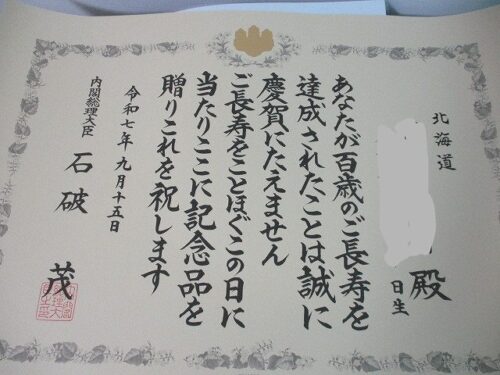 北海道
殿
日生
あなたが百歳のご長寿を
達成されたことは誠に
慶賀にたえません
ご長寿をことほぐこの日に
当たりここに記念品を
贈りこれを祝します
令和七年九月十五日
内閣総理大臣 石破 茂